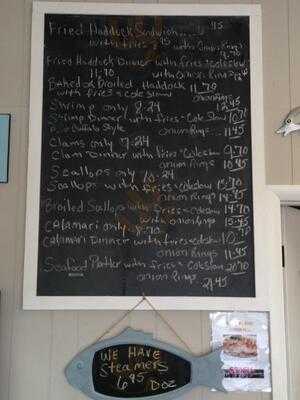 Fried Haddock Sandwich.....
with fries onion Rings
Fried Haddock Dinner with fries & Coleslaw
11.70 with onion Rings
Baked or Broiled Haddock 11.70
with fries & cole slaw onion Rings 12.45
Shrimp only 8.24
Shrimp Dinner with fries & Cole Slaw
Buffalo Style onion Rings... 11.45
Clams only 7.24
Clam Dinner with fries & Coleslaw 9.70
onion Rings 10.45
Scallops only 10.24
Scallops with fries & Coleslaw 13.70
onion Rings 14.45
Broiled Scallops with fries & coleslaw 14.70
with onion Rings 15.45
Calamari only 8.70
Calamari Dinner with fries & coleslaw 10.70
onion Rings 11.45
Seafood Platter with fries & Coleslaw 20.70
onion Rings
21.45
WE HAVE
STEAMERS
6.95 DOZ